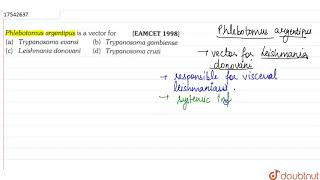 17542637
Phlebotomus argentipus is a vector for [EAMCET 1998]
(a) Trypanosoma evansi (b) Trypanosoma gambiense
(c) Leishmania donovani (d) Trypanosoma cruzi
Phlebotomus argentipus
→ vector for Leishmania
donovani
→ responsible for visceral
leishmaniasis.
→ systemic inf
doubtnut